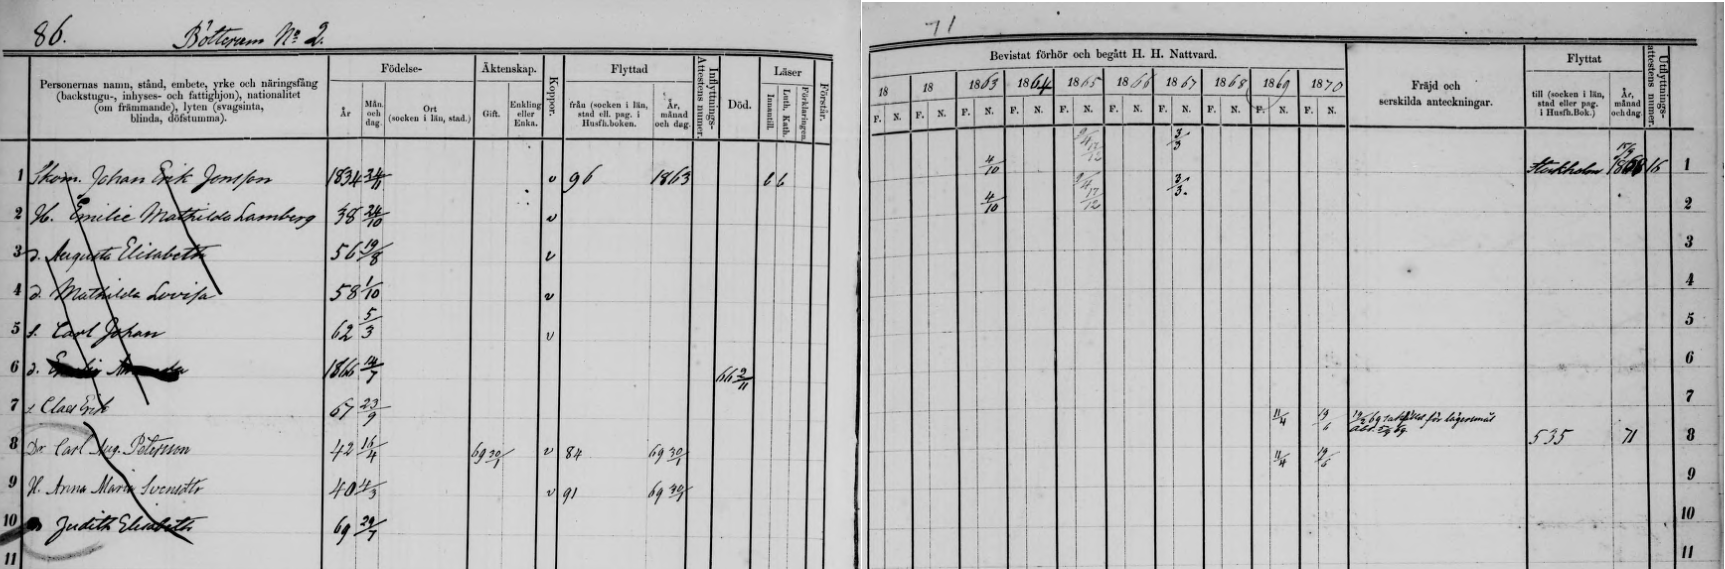 86.
Bötterum No 2.
71
Personernas namn, stånd, embete, yrke och näringsfång
(backstugu-, inhyses- och fattighjon), nationalitet
(om främmande), lyten (svagsinta,
blinda, döfstumma).
Födelse-
År
Mån. och dag.
Ort
(socken i län, stad.)
Äktenskap.
Gift.
Enkling eller Enka.
Koppor.
Flyttad
från (socken i län, stad ell. pag. i Husfh.boken.
År, månad och dag.
Inflyttnings-
Attestens numer.
Död.
Läser
Innantill.
Luth. Kath.
Förklaringen.
Förstår.
Bevistat förhör och begått H. H. Nattvard.
18 18 1863 1864 1865 1866 1867 1868 1869 1870
F. N. F. N. F. N. F. N. F. N. F. N. F. N. F. N. F. N. F. N.
Fräjd och
serskilda anteckningar.
Flyttat
till (socken i län, stad eller pag. i Husfh.Bok.)
År, månad och dag
Utflyttnings-
attestens numer.
1 Skom. Johan Erik Jonsson 1834 24/11 v 96 1863 4/10 3/3 Stockholm 1868 16 1
2 H. Emilie Mathilda Lamberg 38 24/10 v 4/10 3/3 2
3 d. Augusta Elisabeth 56 19/8 v 3
4 d. Mathilda Lovisa 58 1/10 v 4
5 s. Carl Johan 62 5/3 v 5
6 d. 1866 14/7 66 2/11 6
7 s Claes Erik 67 23/9 7
8 Dr Carl Aug. Peterson 42 16/4 69 30/1 v 84 69 30/1 11/4 19/6 för lägersmål 535 71 8
9 H. Anna Maria Svensdtr 40 4/3 v 91 69 30/1 11/4 19/6 9
10 Judith Elisabeth 69 29/7 10
11 11